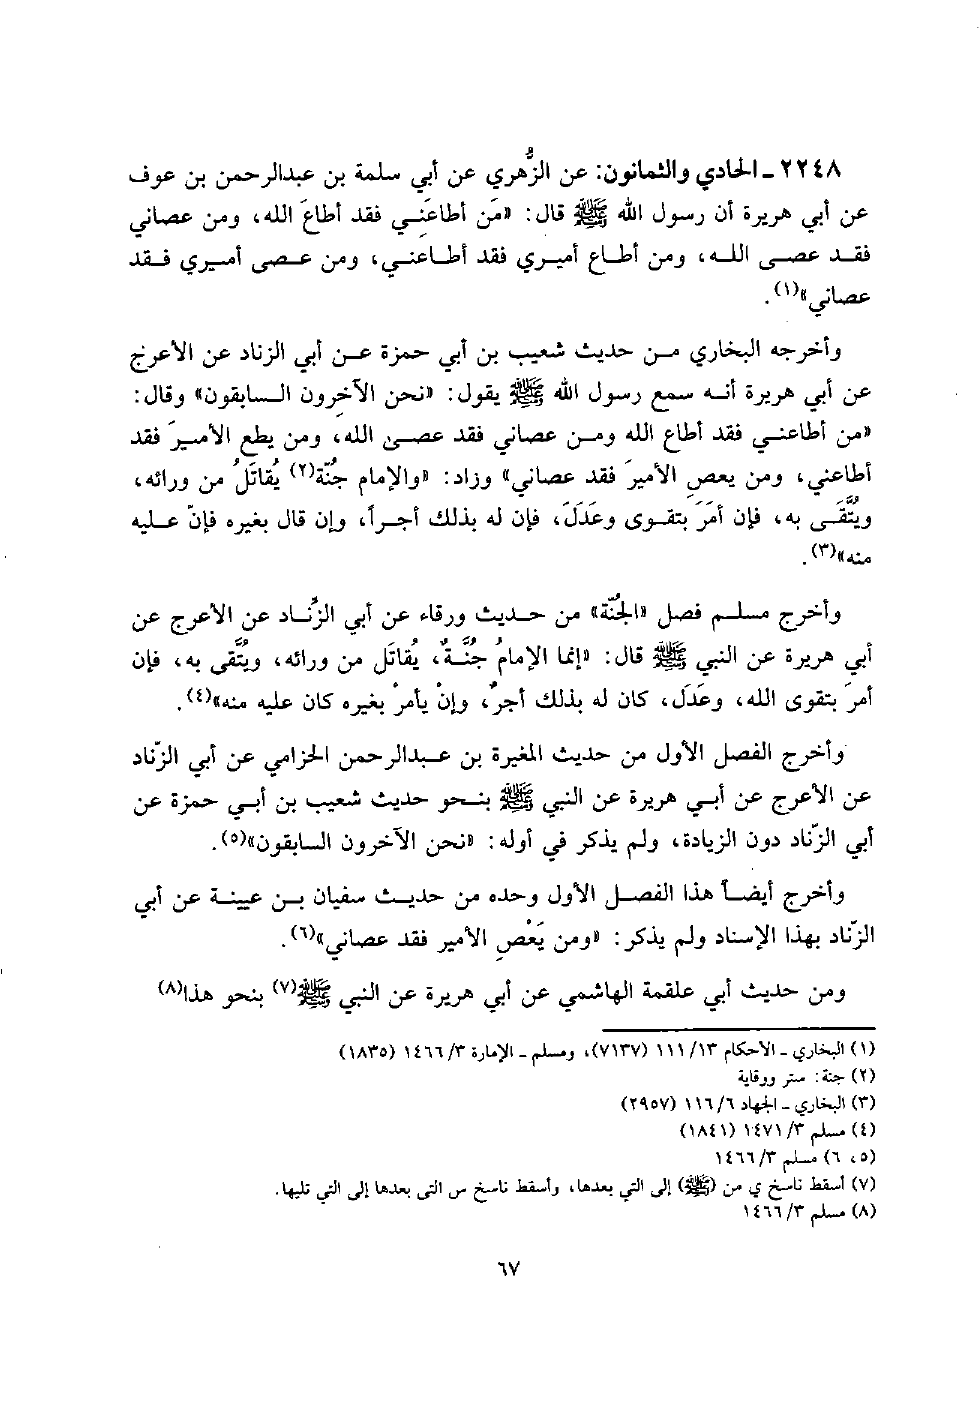 ٢٢٤٨ ـ الحادي والثمانون: عن الزُّهري عن أبي سلمة بن عبدالرحمن بن عوف
عن أبي هريرة أن رسول الله ﷺ قال: «مَن أطاعَنِي فقد أطاعَ الله، ومن عصاني
فقد عصى الله، ومن أطاع أميري فقد أطاعني، ومن عصى أميري فقد
عصاني»(١).
وأخرجه البخاري من حديث شعيب بن أبي حمزة عن أبي الزناد عن الأعرج
عن أبي هريرة أنه سمع رسول الله ﷺ يقول: «نحن الآخِرون السابقون» وقال:
«من أطاعني فقد أطاع الله ومن عصاني فقد عصى الله، ومن يطع الأميرَ فقد
أطاعني، ومن يعصِ الأميرَ فقد عصاني» وزاد: «والإمام جُنّة(٢) يُقاتَلُ من ورائه،
ويُتَّقَى به، فإن أمَرَ بتقوى وعَدَلَ، فإن له بذلك أجراً، وإن قال بغيره فإنّ عليه
منه»(٣).
وأخرج مسلم فصل «الجُنّة» من حديث ورقاء عن أبي الزِّناد عن الأعرج عن
أبي هريرة عن النبي ﷺ قال: «إنما الإمامُ جُنَّةٌ، يُقاتَل من ورائه، ويُتَّقى به، فإن
أمرَ بتقوى الله، وعَدَلَ، كان له بذلك أجرٌ، وإنْ يأمرْ بغيره كان عليه منه»(٤).
وأخرج الفصل الأول من حديث المغيرة بن عبدالرحمن الحزامي عن أبي الزّناد
عن الأعرج عن أبي هريرة عن النبي ﷺ بنحو حديث شعيب بن أبي حمزة عن
أبي الزّناد دون الزيادة، ولم يذكر في أوله: «نحن الآخرون السابقون»(٥).
وأخرج أيضاً هذا الفصل الأول وحده من حديث سفيان بن عيينة عن أبي
الزّناد بهذا الإسناد ولم يذكر: «ومن يَعْصِ الأمير فقد عصاني»(٦).
ومن حديث أبي علقمة الهاشمي عن أبي هريرة عن النبي ﷺ(٧) بنحو هذا(٨)
(١) البخاري ـ الأحكام ١٣/ ١١١ (٧١٣٧)، ومسلم ـ الإمارة ٣/ ١٤٦٦ (١٨٣٥)
(٢) جنة: ستر ووقاية
(٣) البخاري ـ الجهاد ٦/ ١١٦ (٢٩٥٧)
(٤) مسلم ٣/ ١٤٧١ (١٨٤١)
(٥، ٦) مسلم ٣/ ١٤٦٦
(٧) أسقط ناسخ ي من (ﷺ) إلى التي بعدها، وأسقط ناسخ س التي بعدها إلى التي تليها.
(٨) مسلم ٣/ ١٤٦٦
٦٧